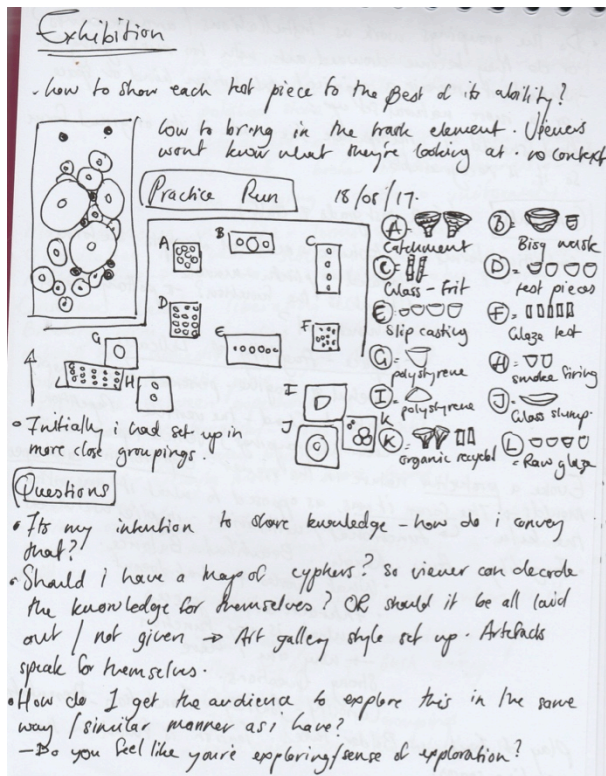 Exhibition
- how to show each test piece to the Best of its ability?
how to bring in the trash element. Viewers
wont know what they're looking at. no context
Practice Run 18/08/17.
A B C
D E F
G H I
L J K
A = Catchment
B = Bisq
C = Glass - frit
D = test pieces
E = Slip casting
F = Glaze test
G = polystyrene
H = smoke firing
I = polystyrene
J = Glass slump.
K = organic recycled
L = Raw glaze
• Initially i had set up in
more close groupings.
Questions
• Its my intention to share knowledge - how do i convey
that?
• Should i have a map of cyphers? So viewer can decode
the knowledge for themselves? OR should it be all laid
out / not given → Art gallery style set up. Artefacts
speak for themselves.
• How do I get the audience to explore this in the same
way / similar manner as i have?
- Do you feel like you're exploring/sense of exploration?